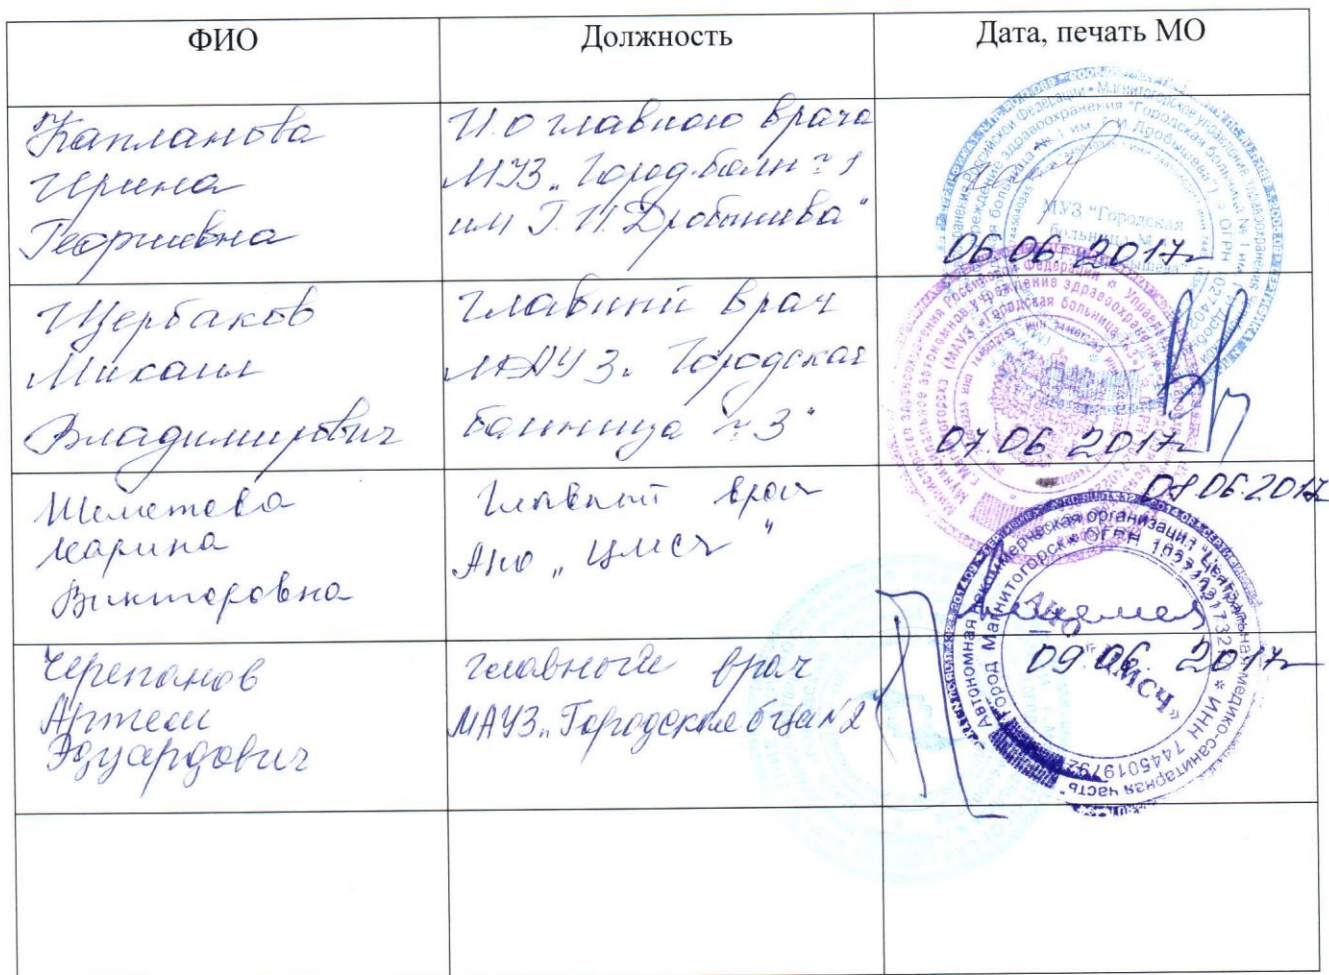 ФИО
Должность
Дата, печать МО
Капланова
Ирина
Георгиевна
И.О главного врача
МУЗ „Город. больн №1
им Г. И. Дробышева"
МУЗ "Городская
06.06.2017г
Щербаков
Михаил
Владимирович
главный врач
МАУЗ „Городская
больница №3"
07.06.2017г
Шеметова
Марина
Викторовна
Главный врач
АНО „ЦМСЧ"
08.06.2017
Автономная некоммерческая организация "Центральная медико-санитарная часть"
город Магнитогорск
ИНН 7445019792
АНО "ЦМСЧ"
Черепанов
Артем
Эдуардович
главный врач
МАУЗ „Городская б-ца №2"
09.06.2017г